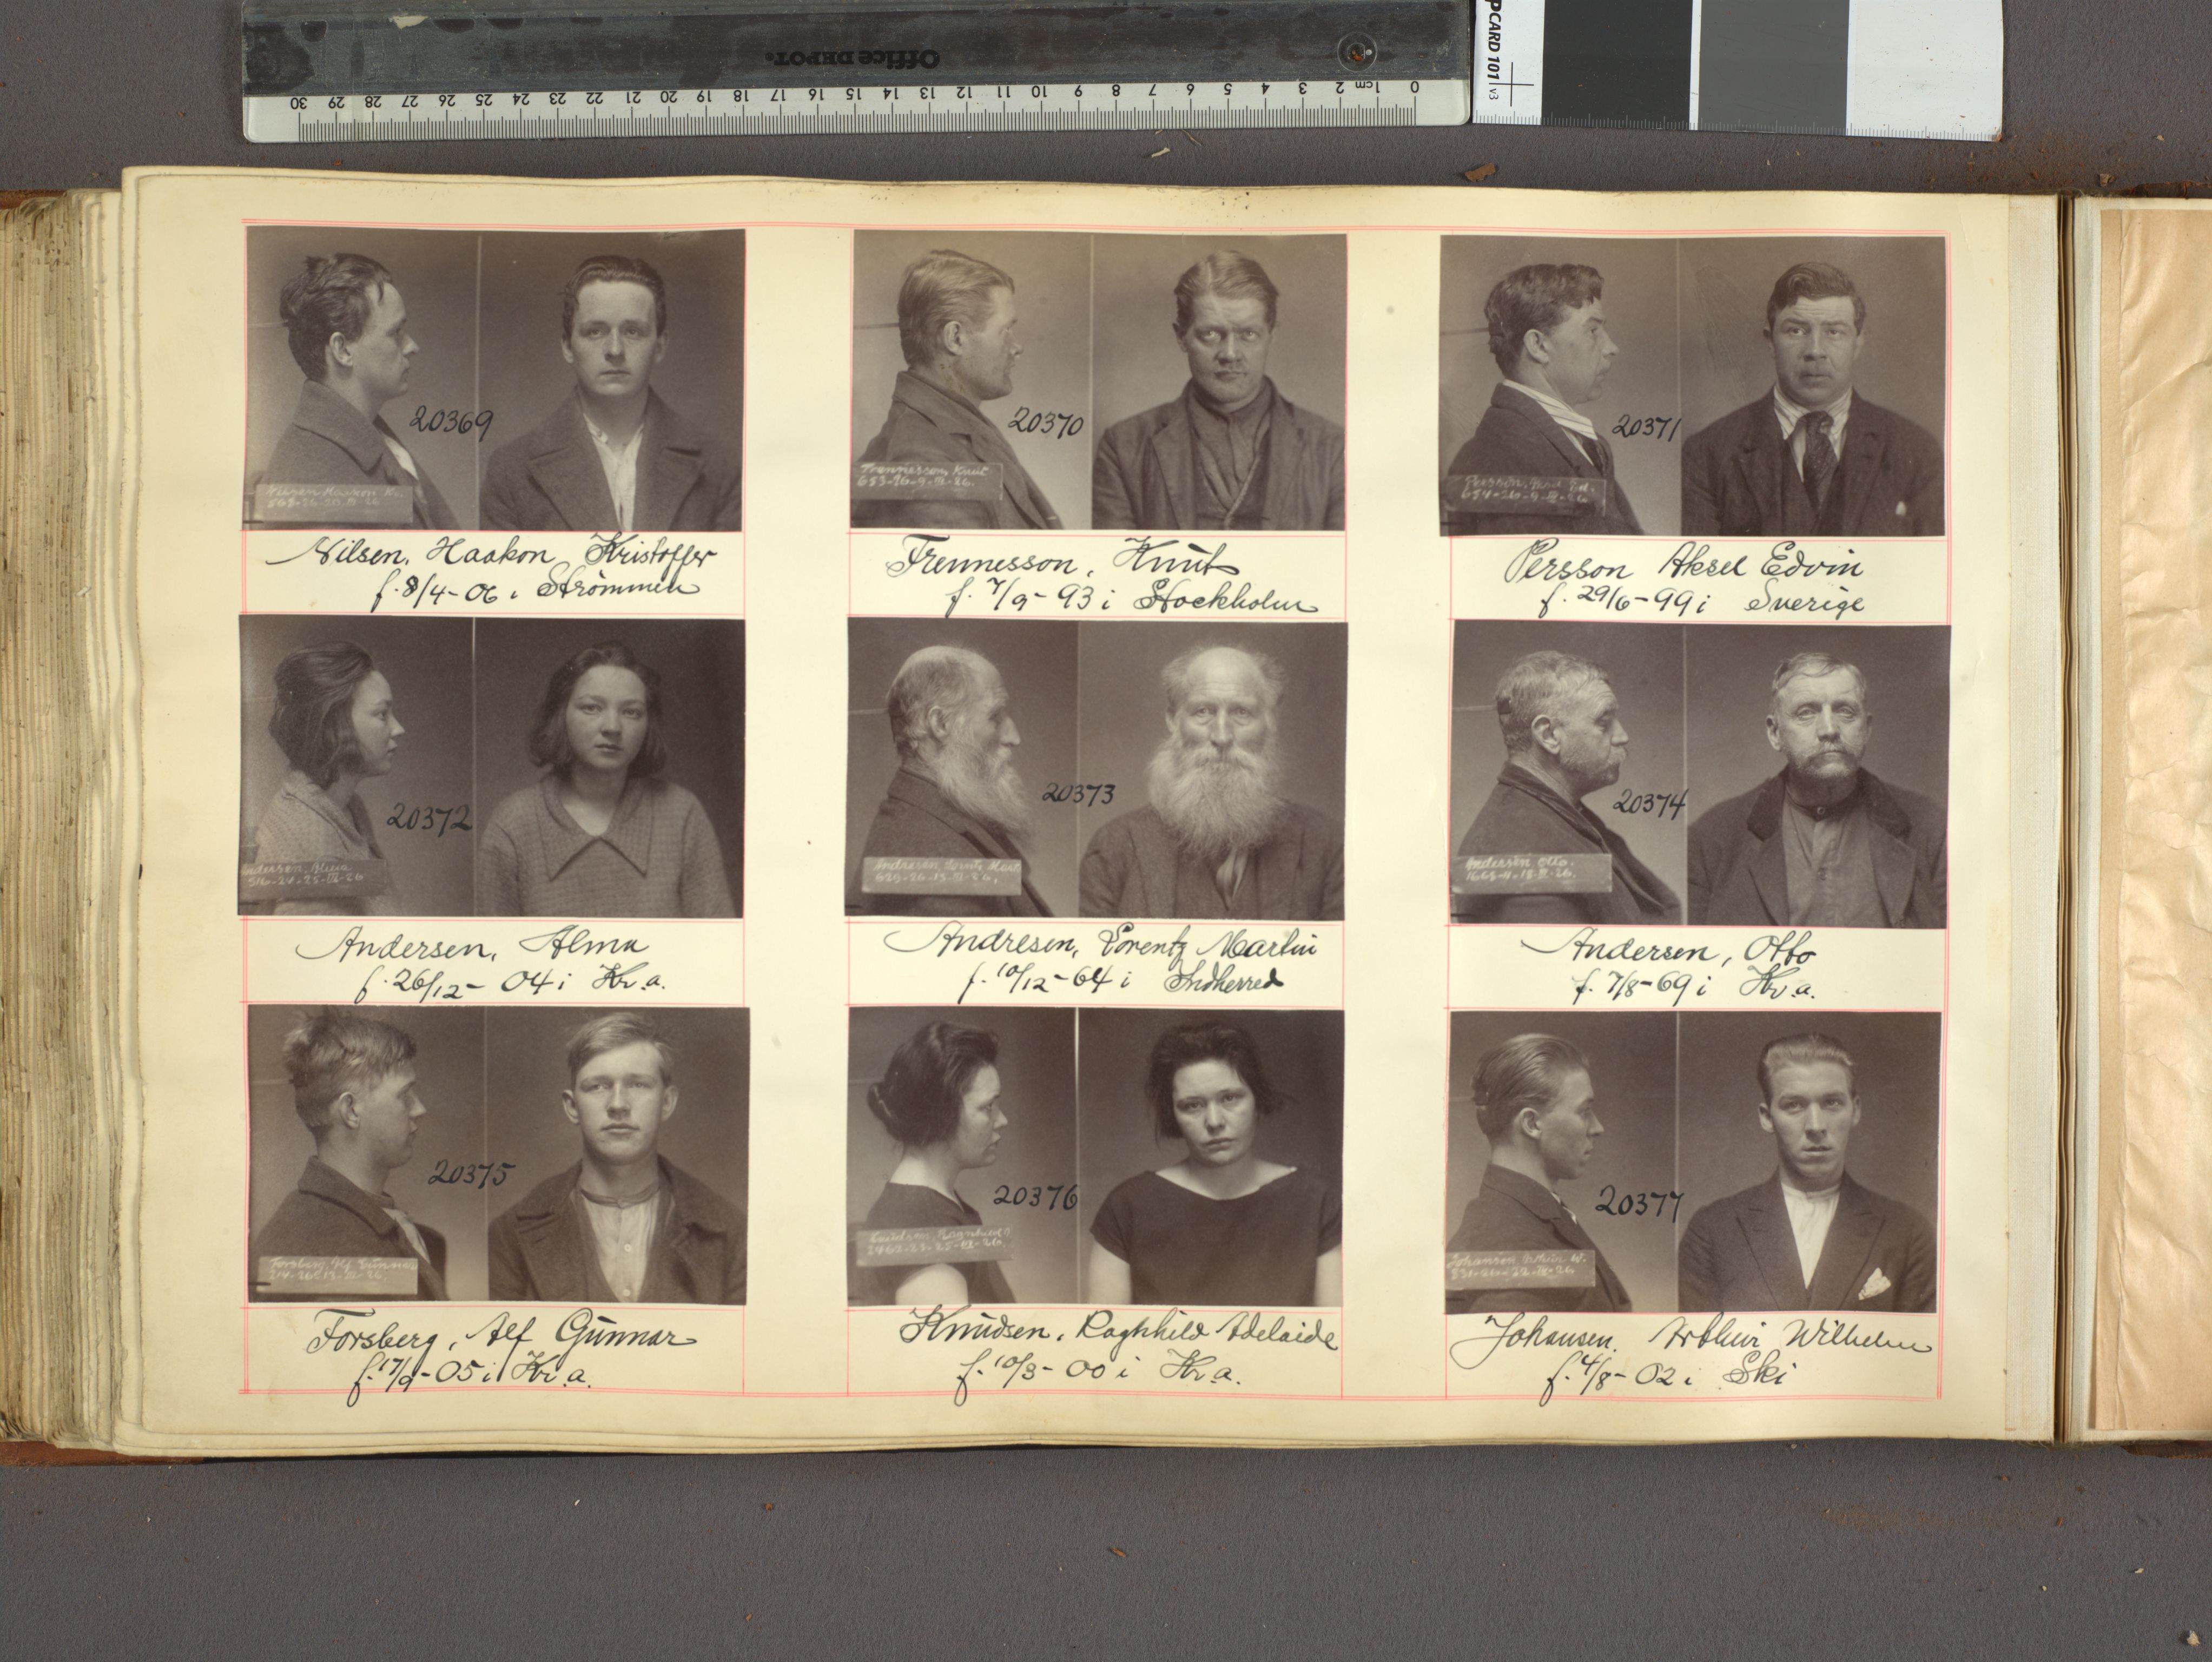 Office DEPOT.
0 1cm 2 3 4 5 6 7 8 9 10 11 12 13 14 15 16 17 18 19 20 21 22 23 24 25 26 27 28 29 30
PCARD 101 v3
20369
Nilsen, Haakon Kristoffer
f. 8/4-06 i Strömmen
20370
Trennesson, Knut
653-26-9-III-26.
Trennesson, Knut
f. 7/9-93 i Stockholm
20371
654-26-9-III-26
Persson Aksel Edvin
f. 29/6-99 i Sverige
20372
Andersen, Alma
516-24-25-III-26
Andersen, Alma
f. 26/12-04 i Kr.a.
20373
Andresen, Lorentz Mart
Andresen, Lorentz Martin
f. 10/12-64 i Indherred
20374
Andersen Otto.
Andersen, Otto
f. 7/8-69 i Kr.a.
20375
Forsberg, Alf Gunnar
Forsberg, Alf Gunnar
f. 17/9-05 i Kr.a.
20376
Knudsen, Ragnhild A
2462-23-25-III-26.
Knudsen, Ragnhild Adelaide
f. 10/3-00 i Kr.a.
20377
Johansen Arthur W.
831-26-22-III-26
Johansen, Arthur Wilhelm
f. 4/8-02 i Ski